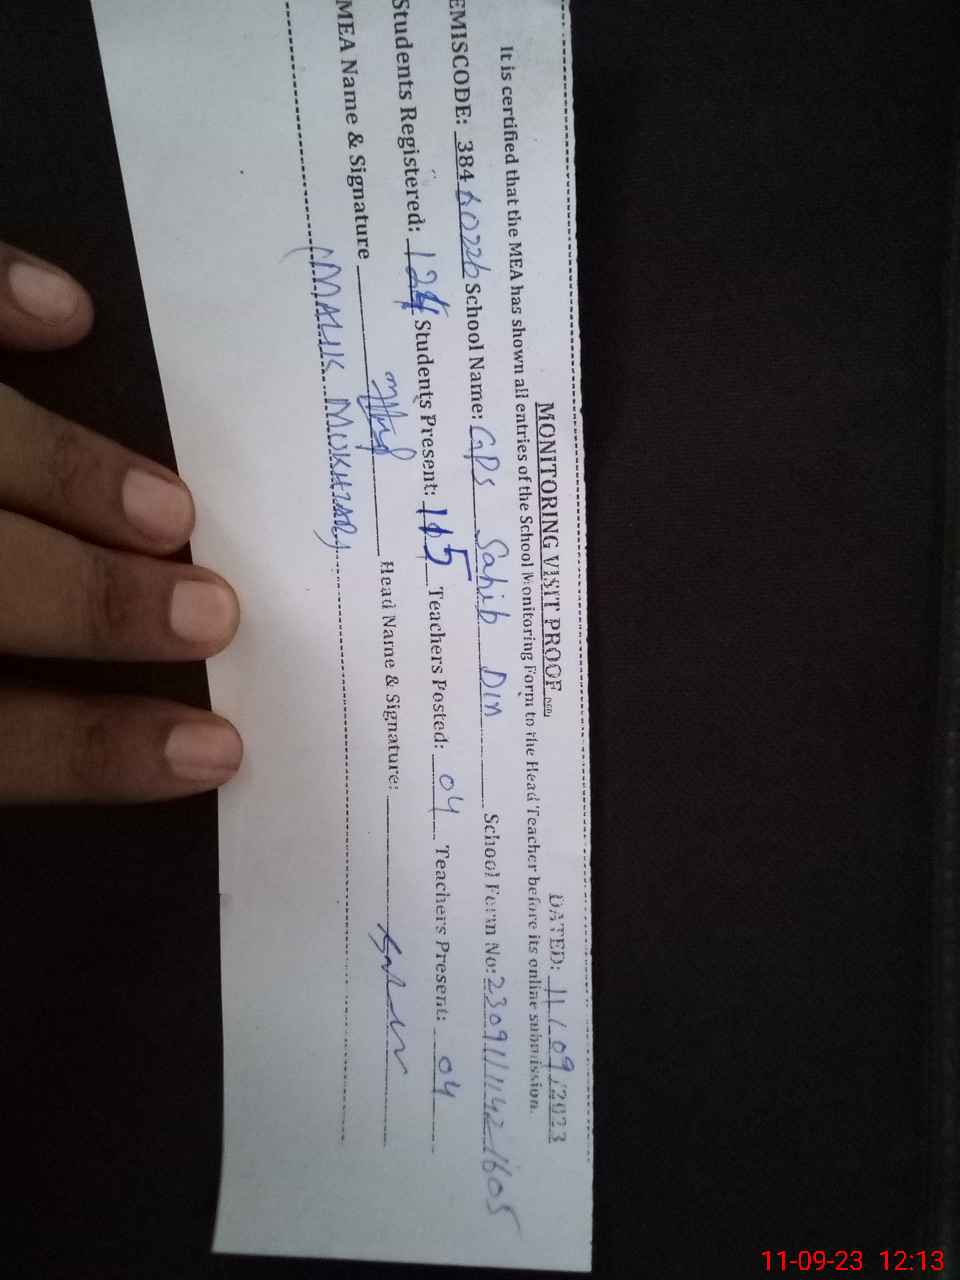 MONITORING VISIT PROOF DATED: 11/09/2023
It is certified that the MEA has shown all entries of the School Monitoring Form to the Head Teacher before its online submission.
EMISCODE: 38460226 School Name: GPS Sahib Din School Form No: 23091111421605
Students Registered: 124 Students Present: 115 Teachers Posted: 04 Teachers Present: 04
MEA Name & Signature Head Name & Signature:
(MALIK MUKHTAR)
11-09-23 12:13